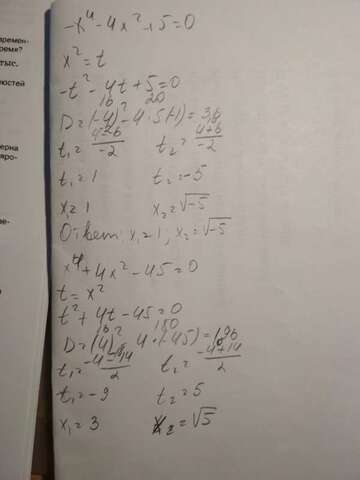 времен-
ремя?
тыс.
ностей
ерна
яро-
ве-
-x⁴-4x²+5=0
x²=t
-t²-4t+5=0
16 20
D=(-4)²-4·5(-1)=36
t₁=4-6/-2 t₂=4+6/-2
t₁=1 t₂=-5
x₁=1 x₂=√-5
Ответ: x₁=1, x₂=√-5
x⁴+4x²-45=0
t=x²
t²+4t-45=0
16 180
D=(4)²-4·(-45)=196
t₁=-4-14/2 t₂=-4+14/2
t₁=-9 t₂=5
x₁=3 x₂=√5